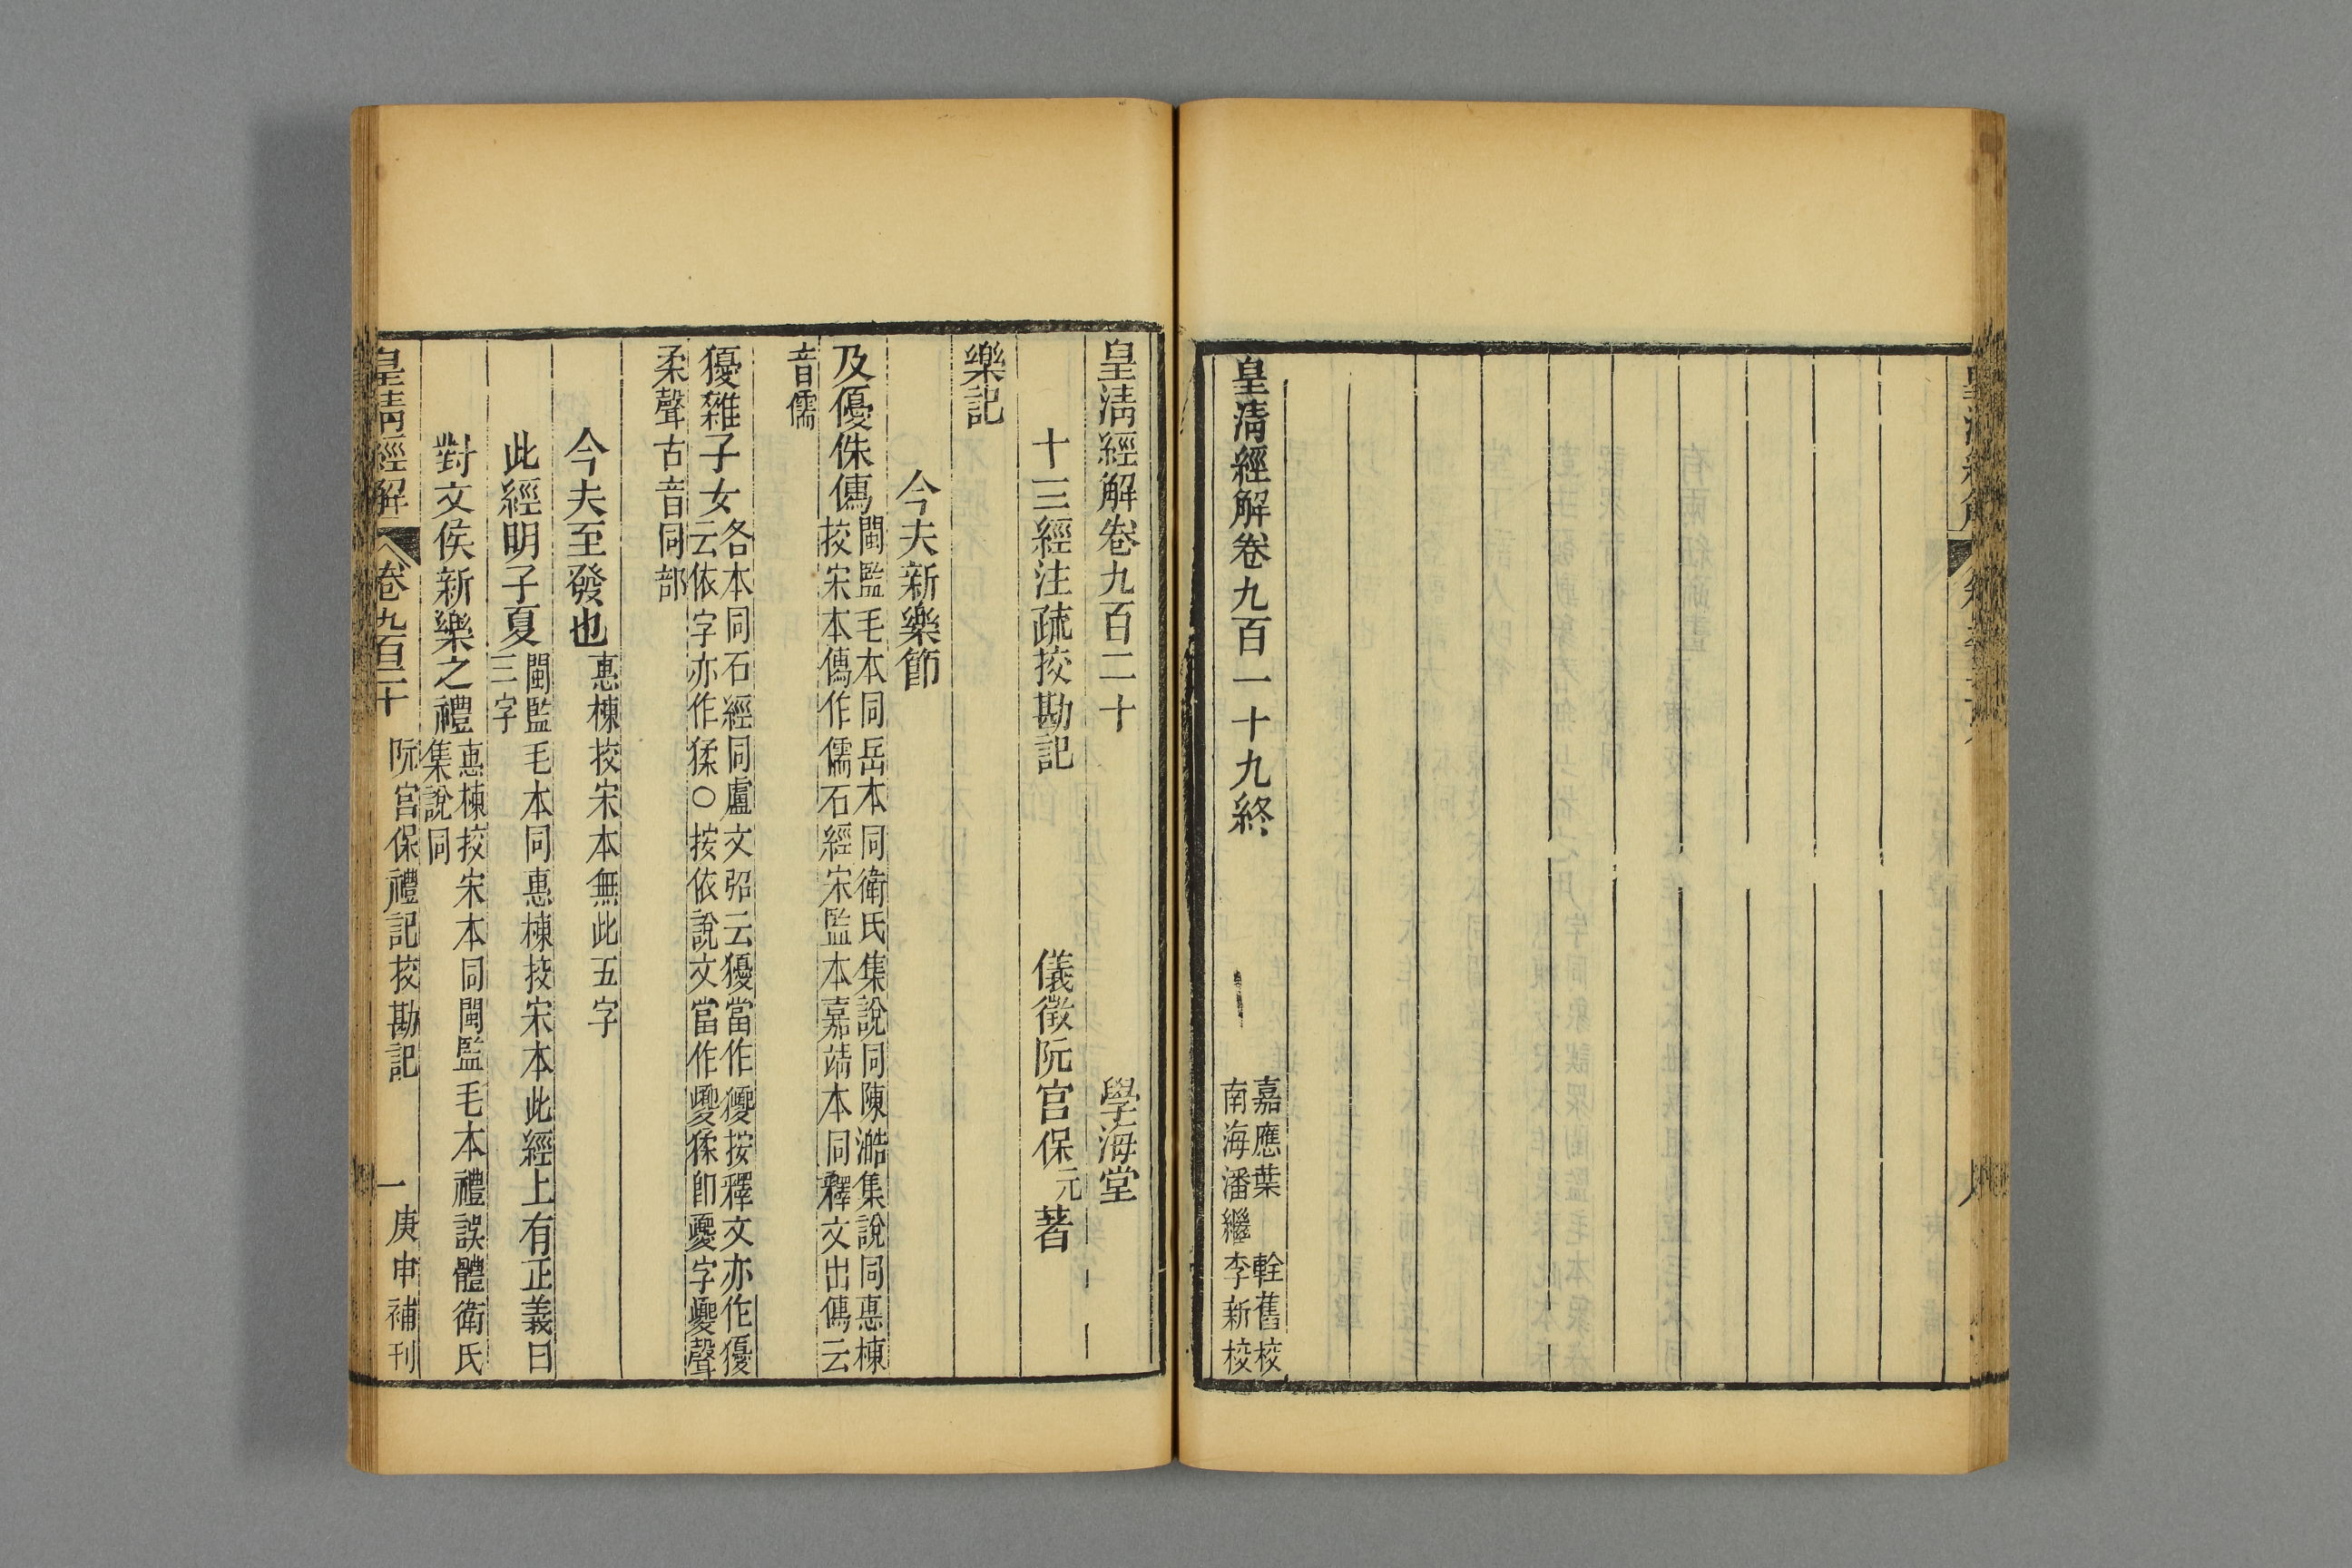 皇清經解卷九百一十九終
嘉應葉 輇舊校
南海潘繼李新校
皇清經解卷九百二十
學海堂
十三經注疏挍勘記
儀徵阮宮保元著
樂記
今夫新樂節
及優侏儔閩監毛本同岳本同衛氏集說同陳澔集說同惠棟
挍宋本儔作儒石經宋監本嘉靖本同釋文出儔云
音儒
獶雜子女各本同石經同盧文弨云獶當作夒按釋文亦作優
云依字亦作猱○按依說文當作夒猱卽夒字夒聲
柔聲古音同部
今夫至發也惠棟挍宋本無此五字
此經明子夏閩監毛本同惠棟挍宋本此經上有正義曰
三字
對文侯新樂之禮惠棟挍宋本同閩監毛本禮誤體衛氏
集說同
皇清經解
卷九百二十
阮宮保禮記挍勘記
一
庚申補刊